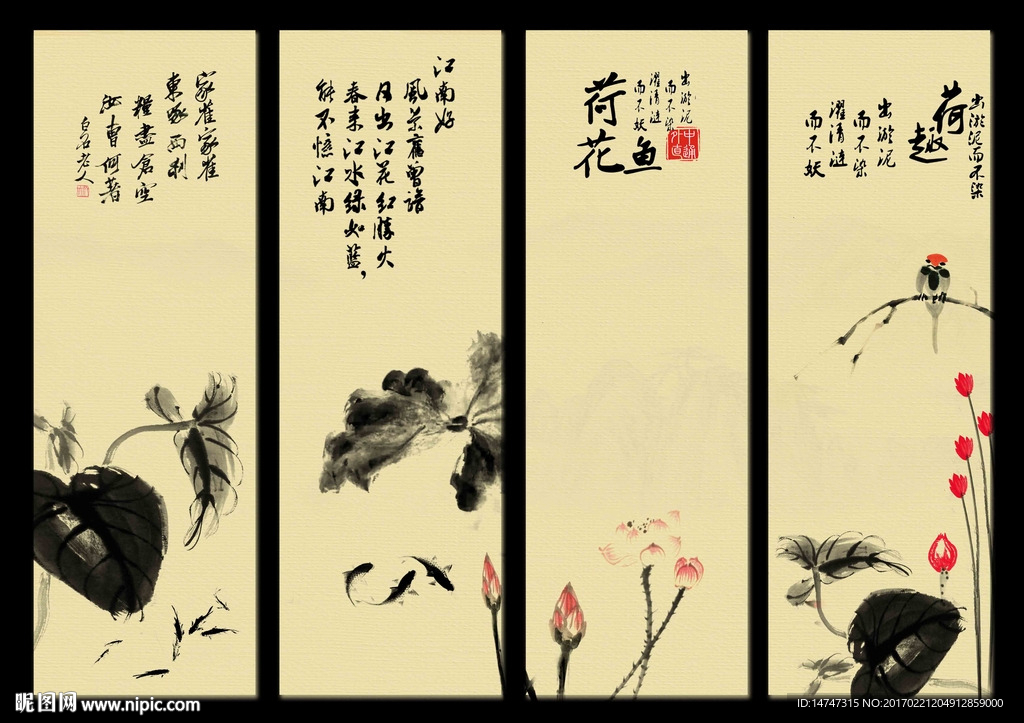 家雀家雀
東啄西剥
糧盡倉空
汝曹何著
白石老人
江南好
風景舊曾諳
日出江花紅勝火
春来江水绿如蓝，
能不憶江南
出淤泥
而不染
濯清涟
而不妖
中通外直
荷花
鱼
出淤泥而不染
荷趣
出淤泥
而不染
濯清涟
而不妖
昵图网 www.nipic.com
ID:14747315 NO:20170221204912859000